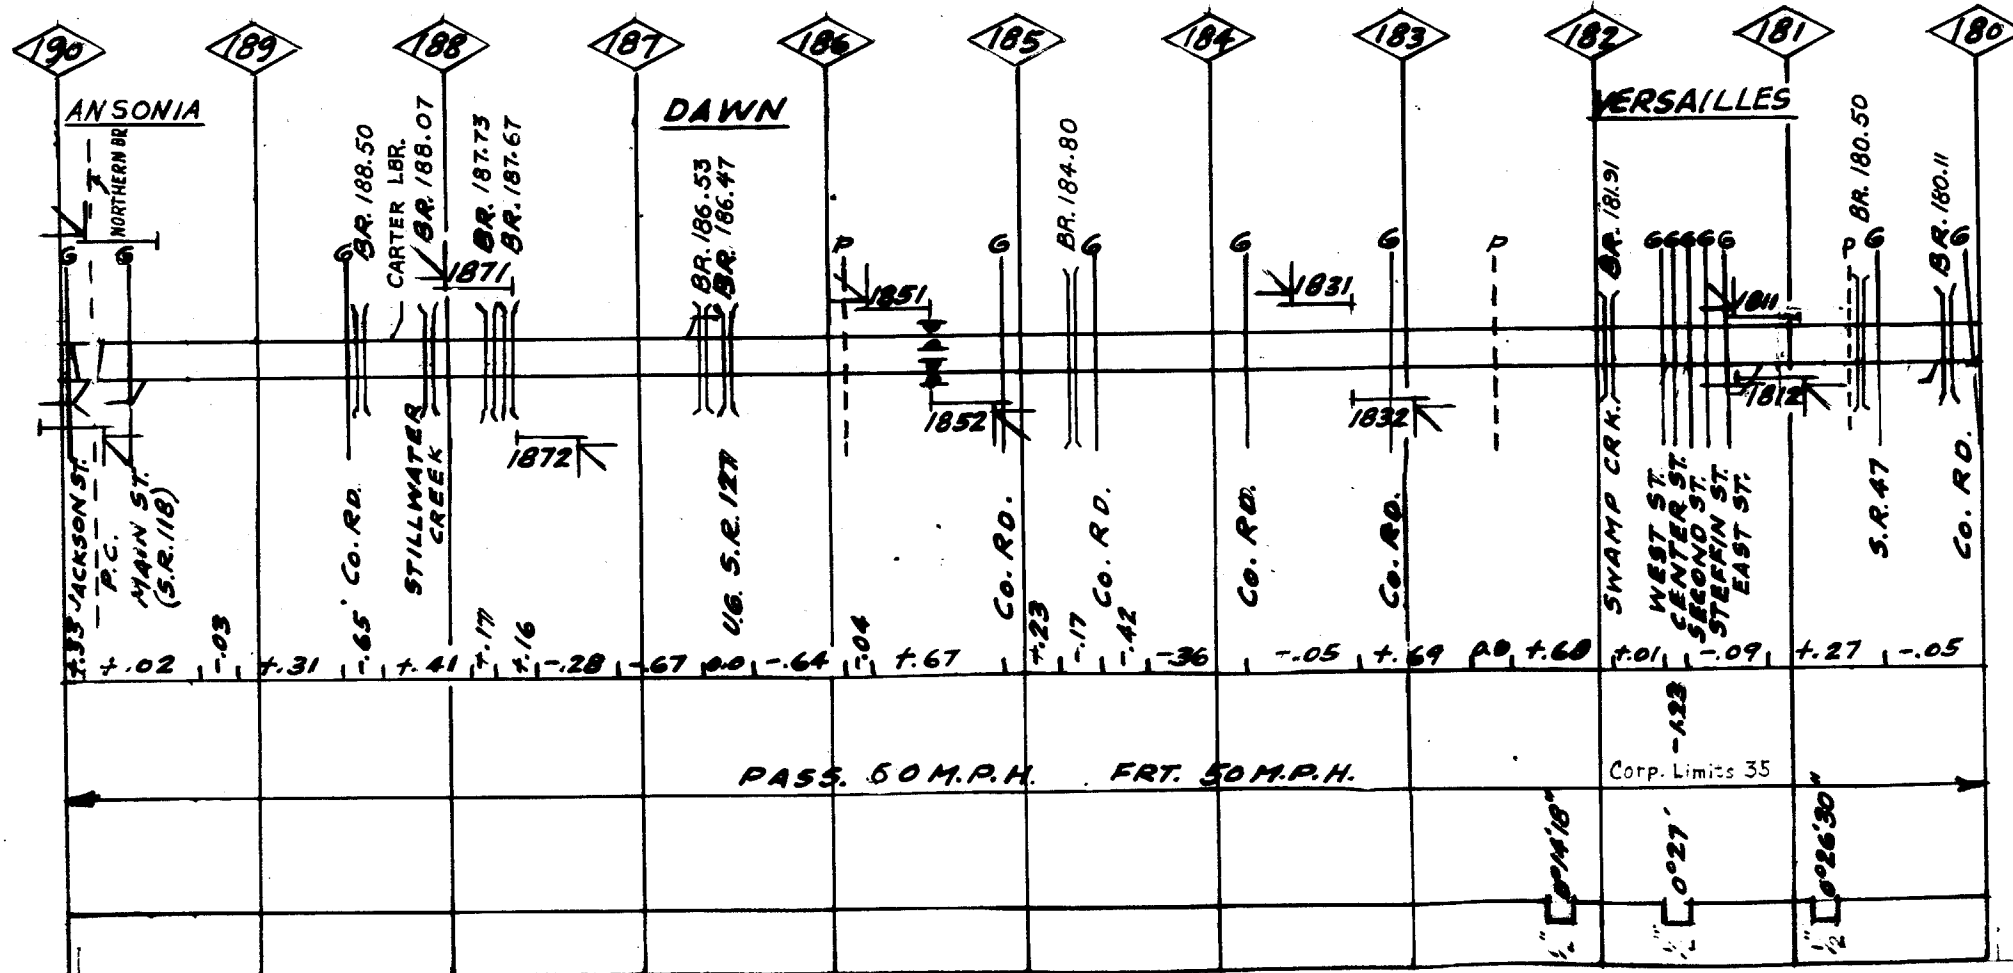 190 189 188 187 186 185 184 183 182 181 180
ANSONIA
DAWN
VERSAILLES
NORTHERN BR
BR. 188.50
CARTER LBR.
BR. 188.07
BR. 187.73
BR. 187.67
BR. 186.53
BR. 186.47
BR. 184.80
BR. 181.91
BR. 180.50
BR. 180.11
G G G P G G G G P G G G G G P G G
1871
1851
1831
1811
1872
1852
1832
1812
JACKSON ST.
P.C.
MAIN ST.
(S.R.118)
CO. RD.
STILLWATER
CREEK
U.G. S.R. 127
CO. RD.
CO. RD.
CO. RD.
CO. RD.
SWAMP CRK.
WEST ST.
CENTER ST.
SECOND ST.
STEFFIN ST.
EAST ST.
S.R.47
CO. RD.
+.33 +.02 -.03 +.31 -.65 +.41 +.17 +.16 -.28 -.67 0.0 -.64 -.04 +.67 +.23 -.17 -.42 -.36 -.05 +.69 0.0 +.60 +.01 -.09 +.27 -.05
PASS. 60 M.P.H. FRT. 50 M.P.H.
Corp. Limits 35
0°14'18"
0°27'
0°26'30"
½"
½"
½"